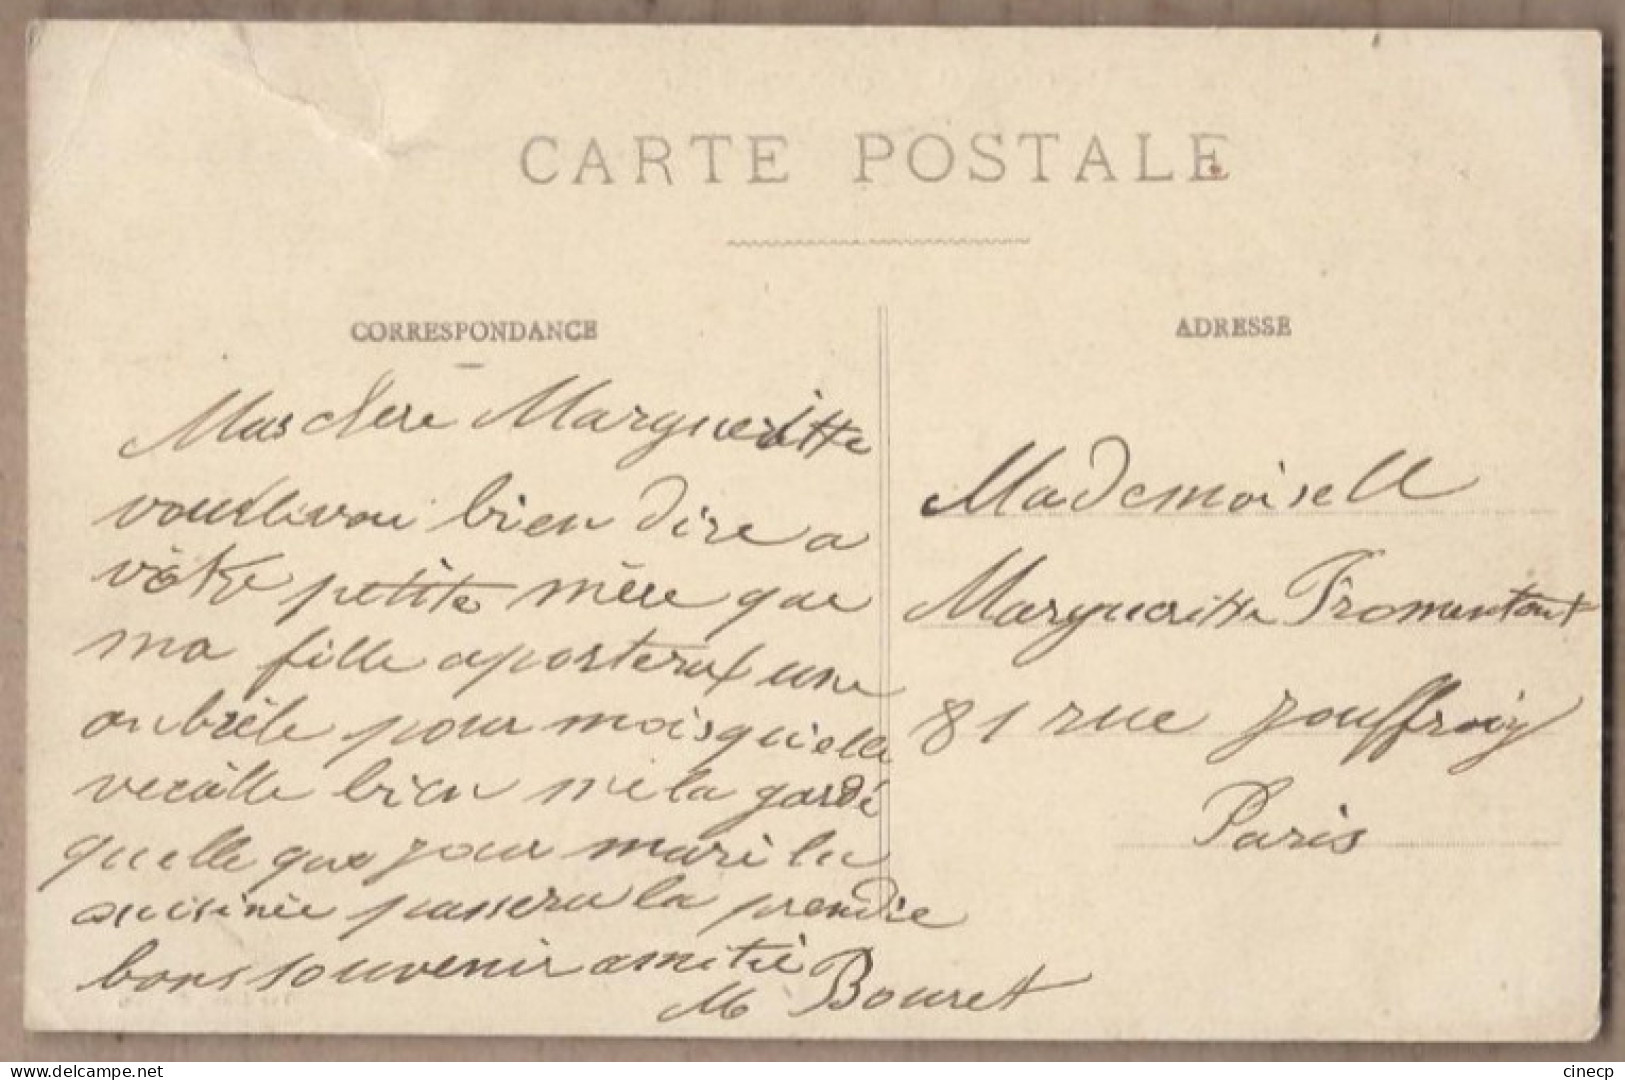 CARTE POSTALE
CORRESPONDANCE
ADRESSE
chere Margueritte
bien dire a
vôtre petite mère que
ma fille aporterat une
pour mois quielle
bien me la gardé
quelle que jour mari la
cuisiniée passera la prendre
bons souvenir amitié
M Bouret
Mademoisell
Margueritte Fromentont
81 rue jouffroiy
Paris
delcampe.net
cinecp